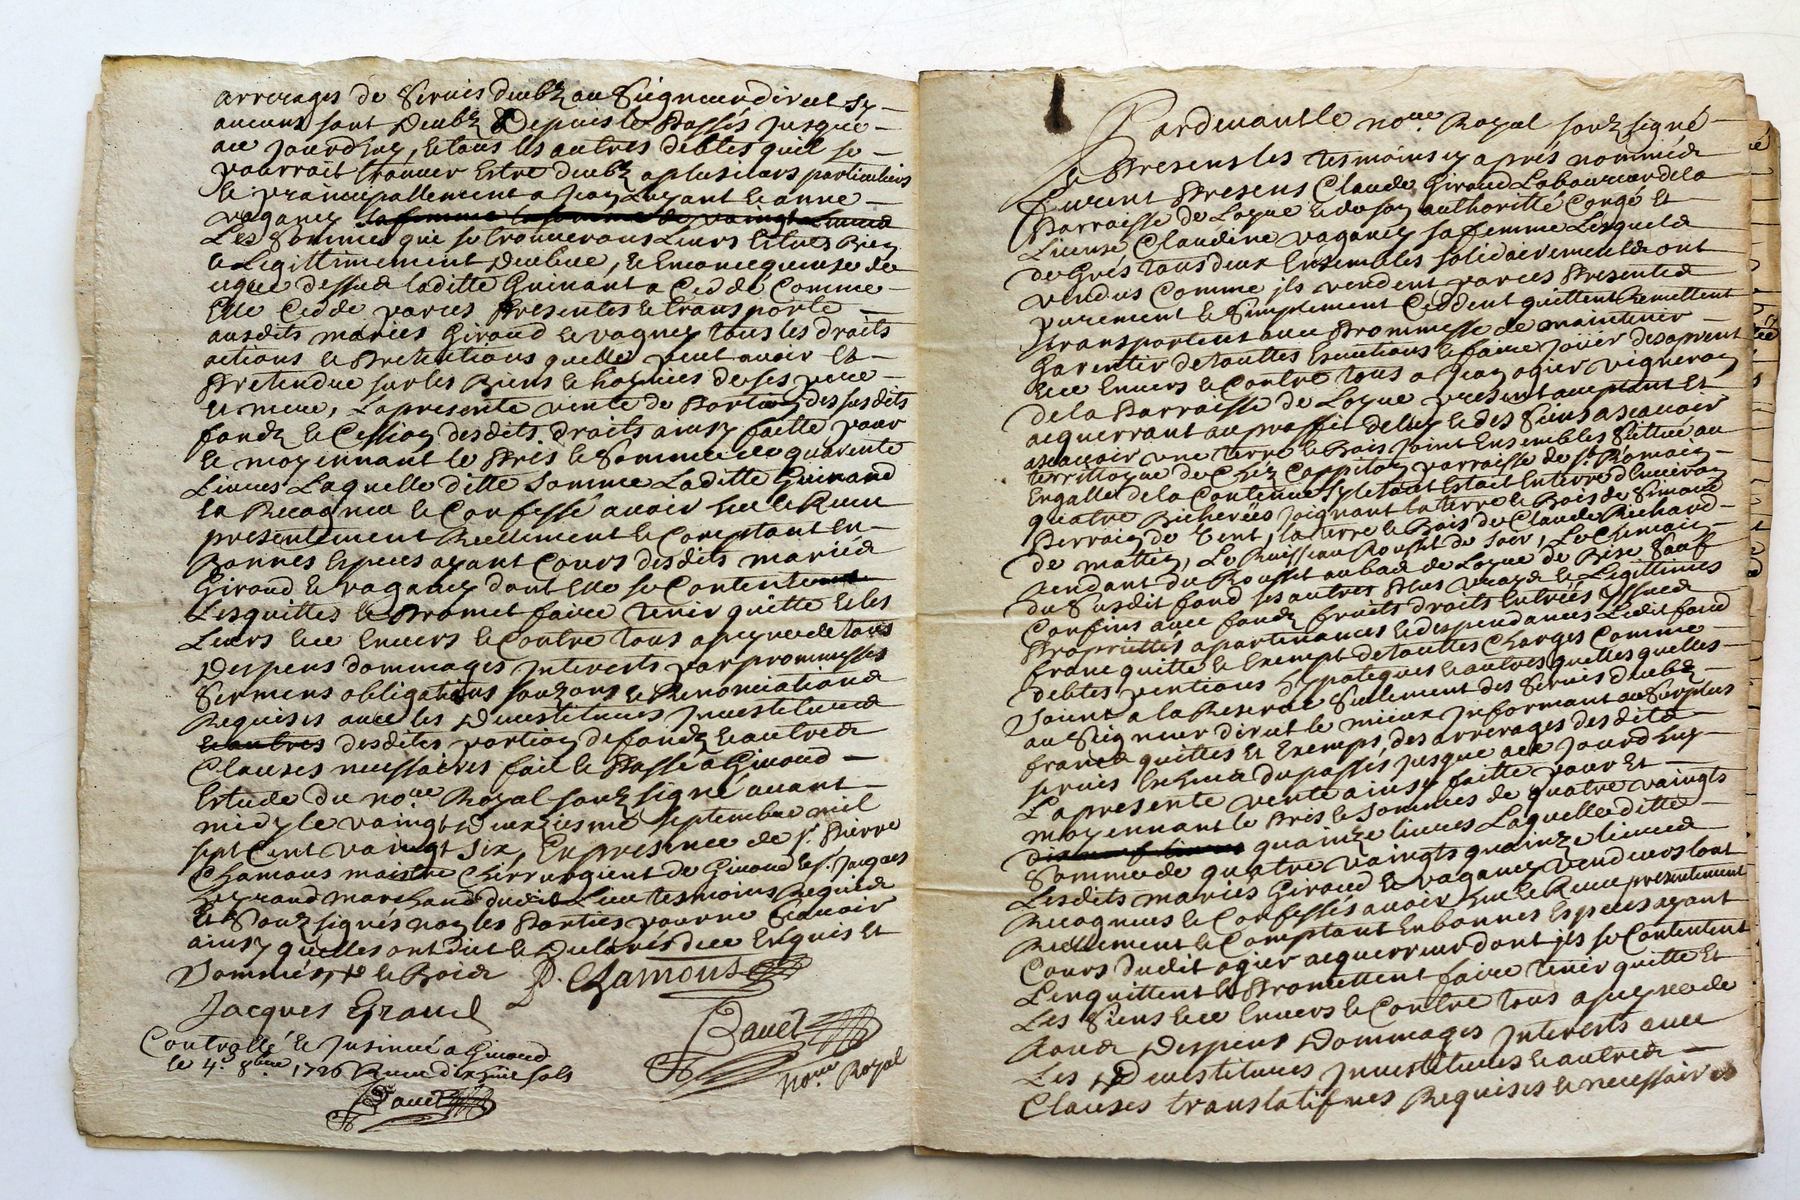 arrerages de servis deubz au Seigneur direct sy
aucuns sont deubz Depuis le Passés jusque
au jourdhuy, et tous les autres debtes quil se
pourrait trouver Estre deubz a plusieurs particuliers
et principallement a Jean et anne
vaganey la femme la somme de vaingt
Les Sommes que se trouverons Leurs Estres Bien
et Legittimement deubue, et En consequense de
ceque dessus laditte Guinant a Ceddé Comme
Elle Cedde par ces Presentes et transporte
ausdits mariés Giraud et vaganey tous les droits
actions et Pretentions quelle peut avoir Et
Pretendue sur les Biens et hoyries de ses pere
et mere, La presente vente de Portion des susdits
fondz et Cession desdits droits ainsy faitte pour
et moyennant le Pris et Somme de quarente
Livres Laquelle ditte Somme Laditte Guinand
la Recogneu et Confessé avoir heu et Receu
presentement Reellement et Comptant En
Bonnes Especes ayant Cours desdits mariés
Giraud et vaganey dont Elle se Contente
Les quittes et Promet faire tenir quitte et les
Leurs Envers et Contre tous a peyne de tous
Despens dommages Interests par prommesses
Sermens obligations souzons et Renonciations
Requises avec les Devestitures Investitures
et autres desdites portion de fondz et autres
Clauses necessaires fait et Passé a Giraud
Estude du no.re Royal souz signé avant
midy le vaingt Deuxiesme septembre mil
sept Cent vaingt six, En presence de s.r Pierre
Chamous maistre Chirrurgient de Giraud et s.r Jacques
Grand marchand dudit Lieu tesmoins Requis
Et Souz signés non les Parties pour ne Scavoir
ainsy quelles ont dict et Declarés de ce Enquis et
Sommés, et le Bois P. Chamous
Jacques Grand
Controllé et Insinué a Giraud
le 4.e 8bre 1726 Receu dix huit sols
Bauet
Bauet
no.re Royal
Pardevant le no.re Royal souz signé
et Presens les tesmoins cy après nommés
furent Presens Claude Giraud Laboureur de la
Parroisse de Logue et de son authoritté Congé Et
License Claudine vaganey sa femme Lesquels
de Grés tous deux Ensembles solidairement ont
vendus Comme ils vendent par ces Presentes
purement et Simplement Ceddent quittent Remettent
transportent avec Prommesse de maintenir
Garentir de touttes Evictions et faire jouir des apresent
Envers et Contre tous a Jean ogier vigneron
de la Parroisse de Logue present acceptant Et
acquerrant au proffit de luy et des Siens a scavoir
ascavoir une terre et Bois joint Ensembles Sittué au
territoyre de Chez Cappiton parroisse de s.t Romain
En galle de la Contenue sy le tout Estait En terre d'Environ
quatre Bicherées joignant la terre et Bois de Simond
Perroin de vent, la terre et Bois de Claude Richard
de mattin, Le Ruisseau Rousset de soir, Le Chemain
tendant du Rousset au bas de Logue de Bise Sauf
du Susdit fond ses autres Plus vrays et Legittimes
Confins avec fondz fruits droits Entrées Issues
Proprietés apartinances et despendances Ledit fond
franc quitte et Exempt de touttes Charges Comme
debtes pentions Ypoteques et autres quelles quelles
Soient a la Reserve Seulement des Servis deubz
au Seigneur direct le mieux Informant au Surplus
francs quittes et Exempts, des arrerages desdits
servis Escheu du passés jusque au jourdhuy
La presente vente ainsy faitte pour Et
moyennant le Pris et Sommes de quatre vaingts
quainze Livres Laquelle ditte
Somme de quatre vaingts quainze livres
Lesdits mariés Giraud et vaganey vendeurs Lont
Recogneus et Confessés avoir heu et Receu presentement
Reellement et Comptant En bonnes Especes ayant
Cours dudit ogier acquerreur dont ils se Contentent
Lenquittent et Promettent faire tenir quitte Et
Les Siens Envers et Contre tous a peyne de
tous Despens Dommages Interests avec
Les Devestitures Investitures et autres
Clauses translatifves Requises et necessaires